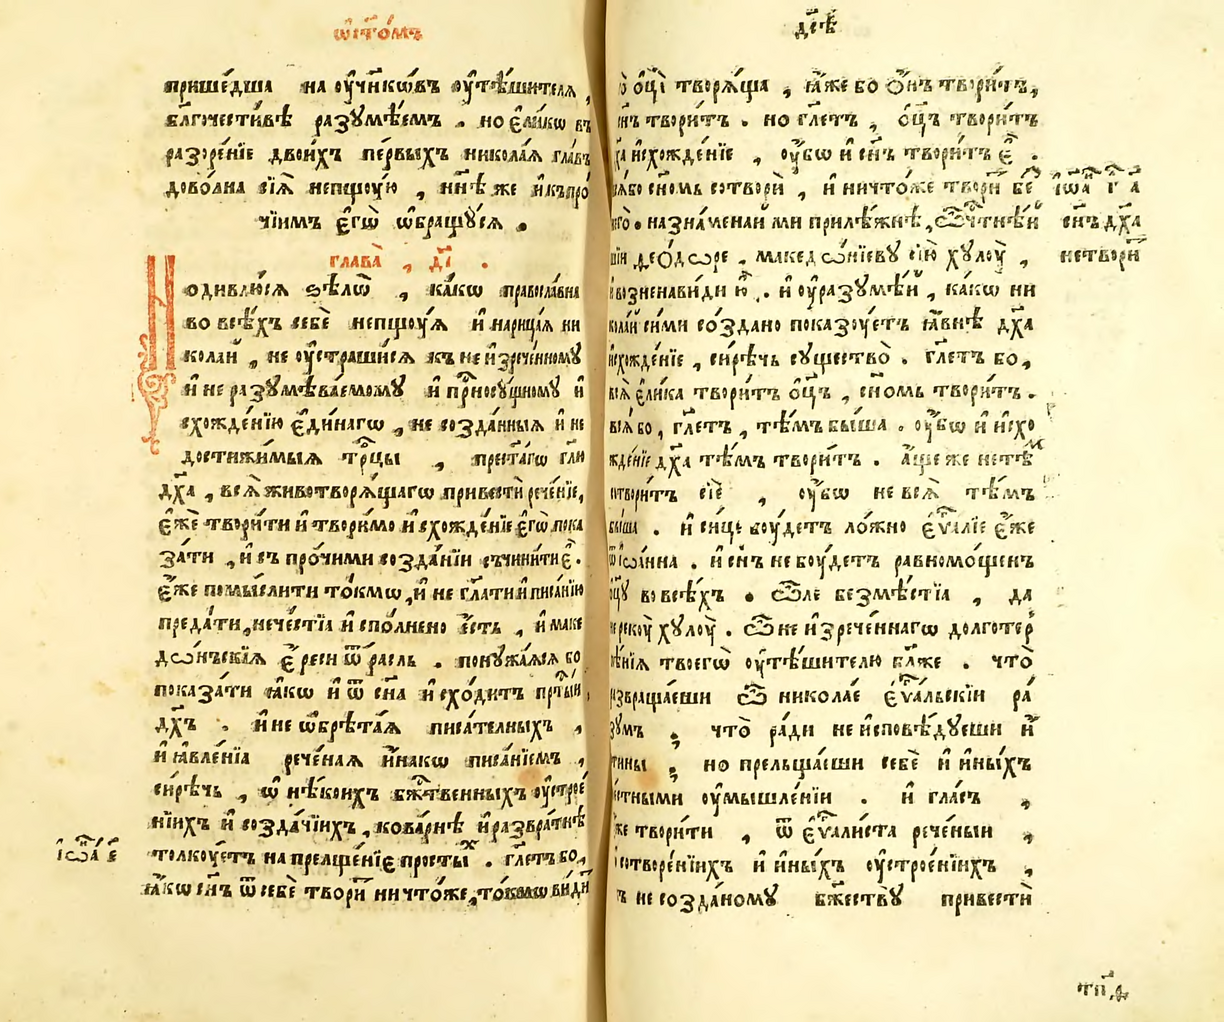 ѡ҆ст҃омъ
прише́дша на оу҆чн҃кѡ́въ оу҆тѣ́шителѧ ,
бл҃гочести́вѣ разꙋмѣ́емъ . но є҆ли́кѡ въ
разоре́нїе двои́хъ пе́рвыхъ никола́ѧ гла́въ
дово́лна сїѧ̀ непщꙋ́ю , нн҃ѣ же и҆ къ про́
чїимъ є҆гѡ̀ ѡ҆бращꙋ́сѧ .
глава̀ , д҃і .
Н
одивлю́сѧ ѕѣлѡ̀ , ка́кѡ правосла́вна
во всѣ́хъ себѐ непщꙋ́ѧ и҆ нарица́ѧ ни
кола́й , не оу҆страши́сѧ къ неи҆зрече́нномꙋ
и҆ не разꙋмѣва́емомꙋ и҆ прⷭ҇носꙋ́щномꙋ и҆
схожде́нїю є҆ди́нагѡ , не со́зданныѧ и҆ не
достижи́мыѧ трⷪ҇цы , прест҃а́гѡ гл҃ю
дх҃а , всѧ̀ животворѧ́щагѡ привестѝ рече́нїе,
є҆́же твори́ти и҆ твори́мо и҆схожде́нїе є҆гѡ̀ пока
за́ти , и҆ съ про́чими созда́нїи съчини́ти є҆̀ .
є҆́же помы́слити то́кмѡ, и҆ не гл҃ати и҆ писа́нїю
преда́ти, нече́стїа и҆спо́лнено є҆́сть , и҆ маке
дѡ́нъскїѧ є҆́реси ѿрасль . понꙋжа́ѧсѧ бо
показа́ти ꙗ҆́кѡ и҆ ѿ сн҃а и҆схо́дитъ прⷭ҇ты́й ,
дх҃ъ . и҆ не ѡ҆брѣта́ѧ писа́телныхъ ,
и҆ ꙗ҆вле́нїа рече́наѧ и҆́накѡ писа́нїемъ ,
си́рѣчь , ѡ҆ нѣ́коихъ бж҃твенныхъ оу҆строе́
нїихъ и҆ созда́чїихъ , кова́рнѣ и҆ развра́тнѣ
толкꙋ́етъ на прелще́нїе просты́х . гл҃етъ бо ,
і҆ѡа҃ є҃
ꙗ҆́кѡ сн҃ъ ѿ себѐ твори́ ничто́же, то́кмѡ ви́ди
дсі҃ѣ
ѻ҆ц҃і̀ творѧ́ща , ꙗ҆́же бо ѻ҆́нъ твори́тъ,
сн҃ъ твори́тъ . но гл҃етъ , ѻ҆ц҃ъ твори́тъ
исхожде́нїе , оу҆́бѡ и҆ сн҃ъ твори́тъ є҆̀ .
бо сн҃омъ сотворѝ , и҆ ничто́же твори́ бе
і҆ѡа҃ г҃ а҃
назна́менай ми прилѣ́жнѣ, ѽ чтнѣ́й
сн҃ъ дх҃а
ѳео́дѡре . македѡ́нїевꙋ сїю̀ хꙋлꙋ̀ ,
нетвори́
возненави́ди ю҆̀ . и҆ оу҆разꙋмѣ́й , ка́кѡ ни
кола́й си́ми со́здано показꙋ́етъ ꙗ҆́внѣ дх҃а
исхожде́нїе , си́рѣчь сꙋщество̀ . гл҃етъ бо ,
всѧ̀ є҆ли́ка твори́тъ ѻ҆ц҃ъ , сн҃омъ твори́тъ .
всѧ̀ бо , гл҃етъ , тѣ́мъ бы́ша . оу҆́бѡ и҆ и҆схо
жде́нїе дх҃а тѣ́мъ твори́тъ . а҆́ще же не тѣ́м
сотвори́тъ сїѐ , оу҆́бѡ не всѧ̀ тѣ́мъ
бы́ша . и҆ си́це бꙋ́детъ ло́жно є҆ѵⷢ҇алїе є҆́же
ѿ і҆ѡа́нна . и҆ сн҃ъ не бꙋ́детъ равномо́щенъ
ѻ҆ц҃ꙋ̀ во всѣ́хъ . ѽле безмѣ́стїа , да
не рекꙋ̀ хꙋлꙋ̀ . ѽ неи҆зрече́ннагѡ долготер
пѣ́нїѧ твоегѡ̀ оу҆тѣ́шителю бл҃же . что̀
развраща́еши ѽ никола́е є҆ѵⷢ҇альскїи ра́
зꙋмъ , что̀ ра́ди не и҆сповѣ́дꙋеши и҆́
стины ; но прельща́еши себѐ и҆ и҆ны́хъ
оу҆мышле́нїи . и҆ гла́съ ,
же твори́ти , ѿ є҆ѵⷢ҇али́ста рече́ныи ,
сотворе́нїихъ и҆ и҆ны́хъ оу҆строе́нїихъ ,
не созда́номꙋ бж҃ествꙋ̀ привестѝ